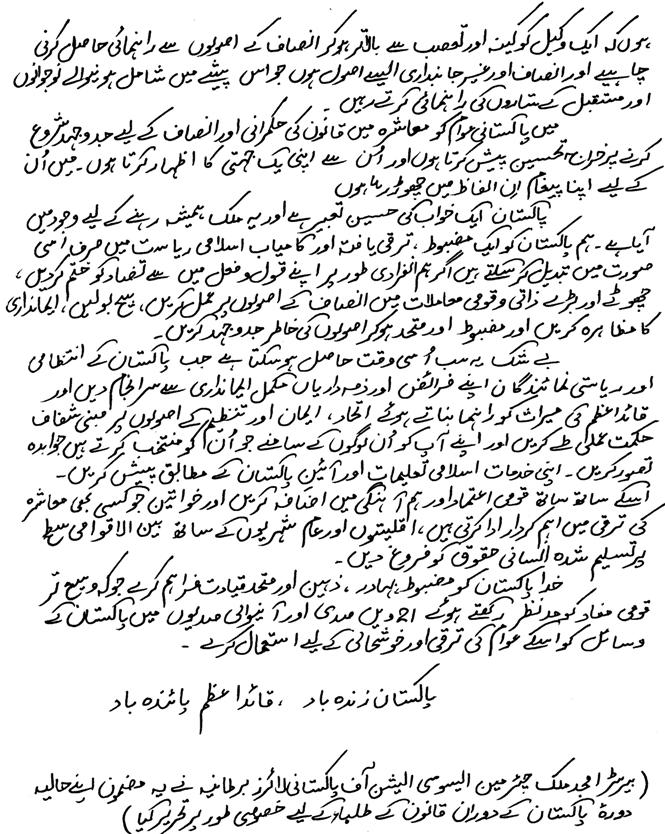 ہوں کہ ایک وکیل کو کینہ اور تعصب سے بالاتر ہو کر انصاف کے اصولوں سے راہنمائی حاصل کرنی
چاہیے اور انصاف اور غیر جانبداری ایسے اصول ہوں جو اس پیشے میں شامل ہونیوالے نوجوانوں
اور مستقبل کے ستاروں کی راہنمائی کرتے رہیں۔
میں پاکستانی عوام کو معاشرہ میں قانون کی حکمرانی اور انصاف کے لیے جدوجہد شروع
کرنے پر خراج تحسین پیش کرتا ہوں اور اُن سے اپنی یک جہتی کا اظہار کرتا ہوں۔ میں اُن
کے لیے اپنا پیغام اِن الفاظ میں چھوڑ رہا ہوں
پاکستان ایک خواب کی حسین تعبیر ہے اور یہ ملک ہمیشہ رہنے کے لیے وجود میں
آیا ہے۔ ہم پاکستان کو ایک مضبوط، ترقی یافتہ اور کامیاب اسلامی ریاست میں صرف اُسی
صورت میں تبدیل کر سکتے ہیں اگر ہم انفرادی طور پر اپنے قول و فعل میں سے تضاد کو ختم کر دیں،
چھوٹے اور بڑے ذاتی و قومی معاملات میں انصاف کے اصولوں پر عمل کریں، سچ بولیں، ایمانداری
کا مظاہرہ کریں اور مضبوط اور متحد ہو کر اصولوں کی خاطر جدوجہد کریں۔
بے شک یہ سب اُسی وقت حاصل ہو سکتا ہے جب پاکستان کے انتظامی
اور ریاستی نمائندگان اپنے فرائض اور ذمہ داریاں مکمل ایمانداری سے سرانجام دیں اور
قائداعظم کی میراث کو راہنما بناتے ہوئے اتحاد، ایمان اور تنظیم کے اصولوں پر مبنی شفاف
حکمت عملی طے کریں اور اپنے آپ کو اُن لوگوں کے سامنے جو اُن کو منتخب کرتے ہیں جوابدہ
تصور کریں۔ اپنی خدمات اسلامی تعلیمات اور آئین پاکستان کے مطابق پیش کریں۔
اسکے ساتھ ساتھ قومی اعتماد اور ہم آہنگی میں اضافہ کریں اور خواتین جو کسی بھی معاشرہ
کی ترقی میں اہم کردار ادا کرتی ہیں، اقلیتوں اور عام شہریوں کے ساتھ بین الاقوامی سطح
پر تسلیم شدہ انسانی حقوق کو فروغ دیں۔
خدا پاکستان کو مضبوط، بہادر، ذہین اور متحد قیادت فراہم کرے جو کہ وسیع تر
قومی مفاد کو مدنظر رکھتے ہوئے 21 ویں صدی اور آنیوالی صدیوں میں پاکستان کے
وسائل کو اسکے عوام کی ترقی اور خوشحالی کے لیے استعمال کرے۔
پاکستان زندہ باد، قائداعظم پائندہ باد
(بیرسٹر امجد ملک چیئرمین ایسوسی ایشن آف پاکستانی لائرز برطانیہ نے یہ مضمون اپنے حالیہ
دورۂ پاکستان کے دوران قانون کے طلباء کے لیے خصوصی طور پر تحریر کیا)